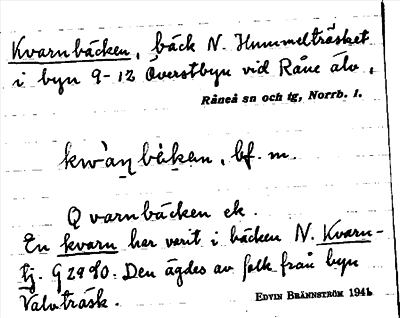 Kvarnbäcken, bäck N. Hummelträsket
i byn 9-12 Överstbyn vid Råne älv.
Råneå sn och tg, Norrb. l.
kwàn bäken, bf. m.
Qvarnbäcken ek.
En kvarn har varit i bäcken N. Kvarn-
tj. G 2980. Den ägdes av folk från byn
Valvträsk.
EDVIN BRÄNNSTRÖM 1941